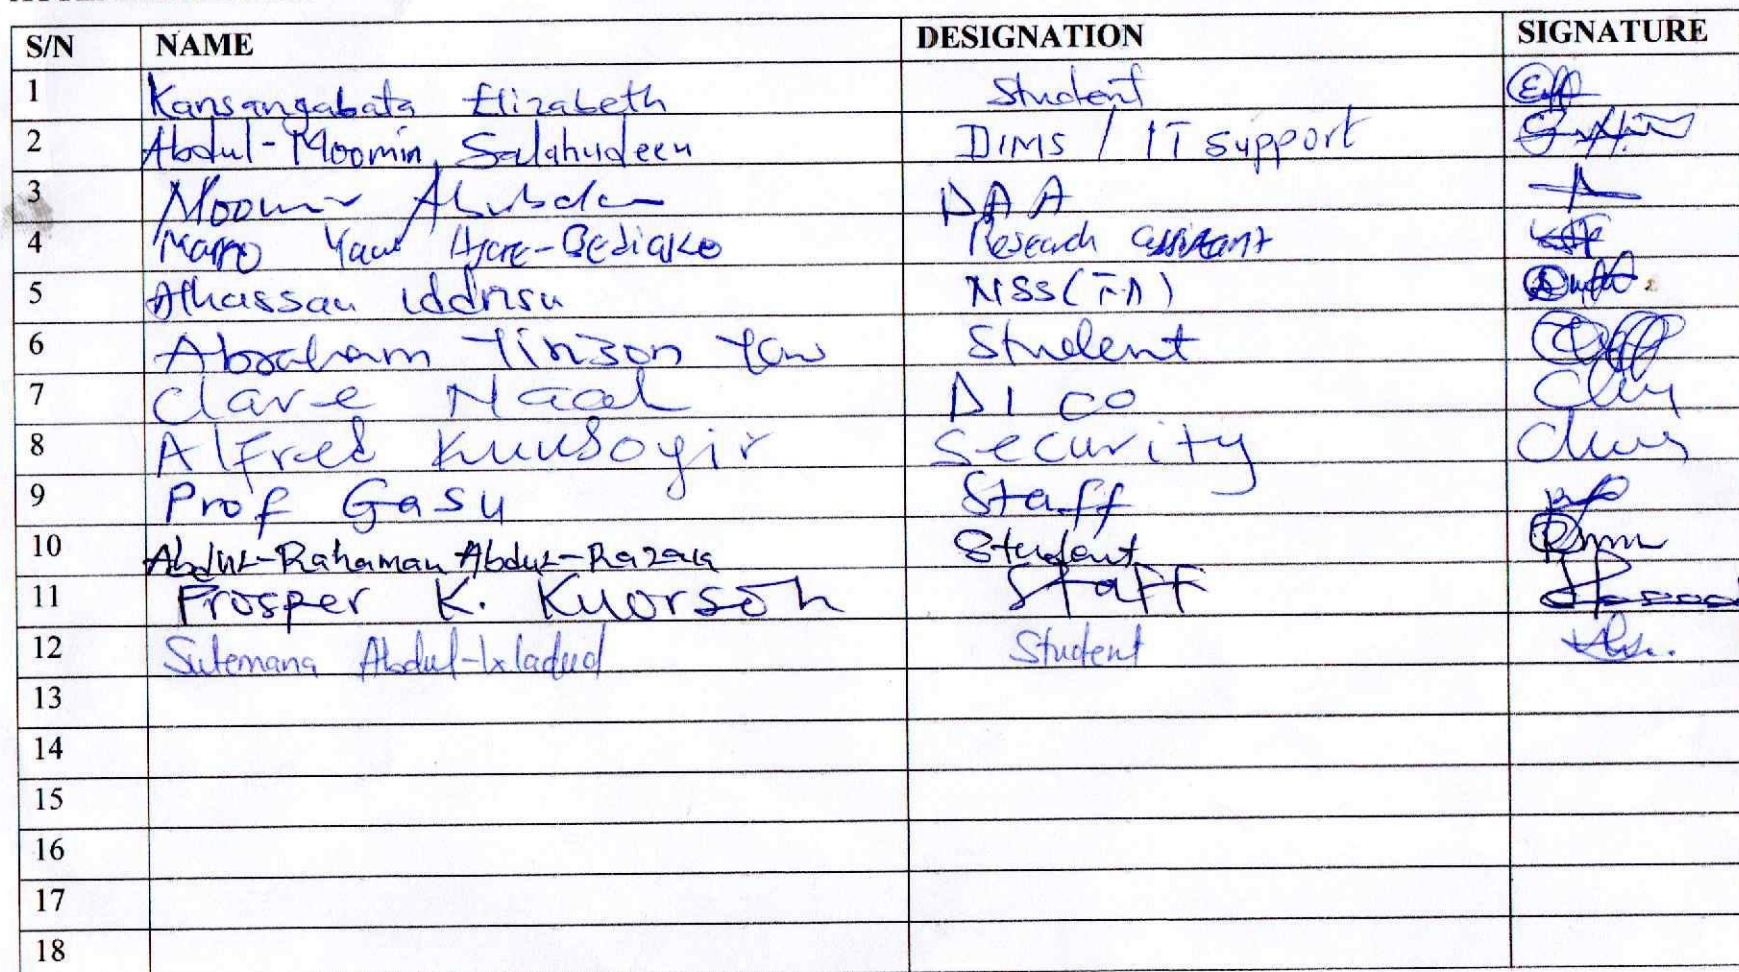 S/N NAME DESIGNATION SIGNATURE
1 Kansangabata Elizabeth Student
2 Abdul-Moomin Salahudeen DIMS / IT Support
3 Moomin Abubakar DAA
4 Yaw Research assistant
5 Alhassan Iddrisu NSS(TA)
6 Abraham Tinzon Yaw Student
7 Clare Naah DICO
8 Alfred Kuusoyir Security
9 Prof Gasu Staff
10 Abdul-Rahaman Abdul-Razak Student
11 Prosper K. Kuorsoh Staff
12 Sulemana Student
13
14
15
16
17
18